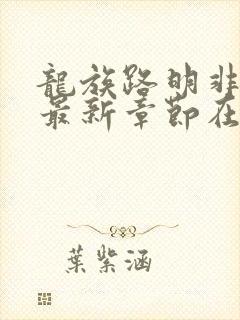 龍族路明非
最新章節在
葉紫涵